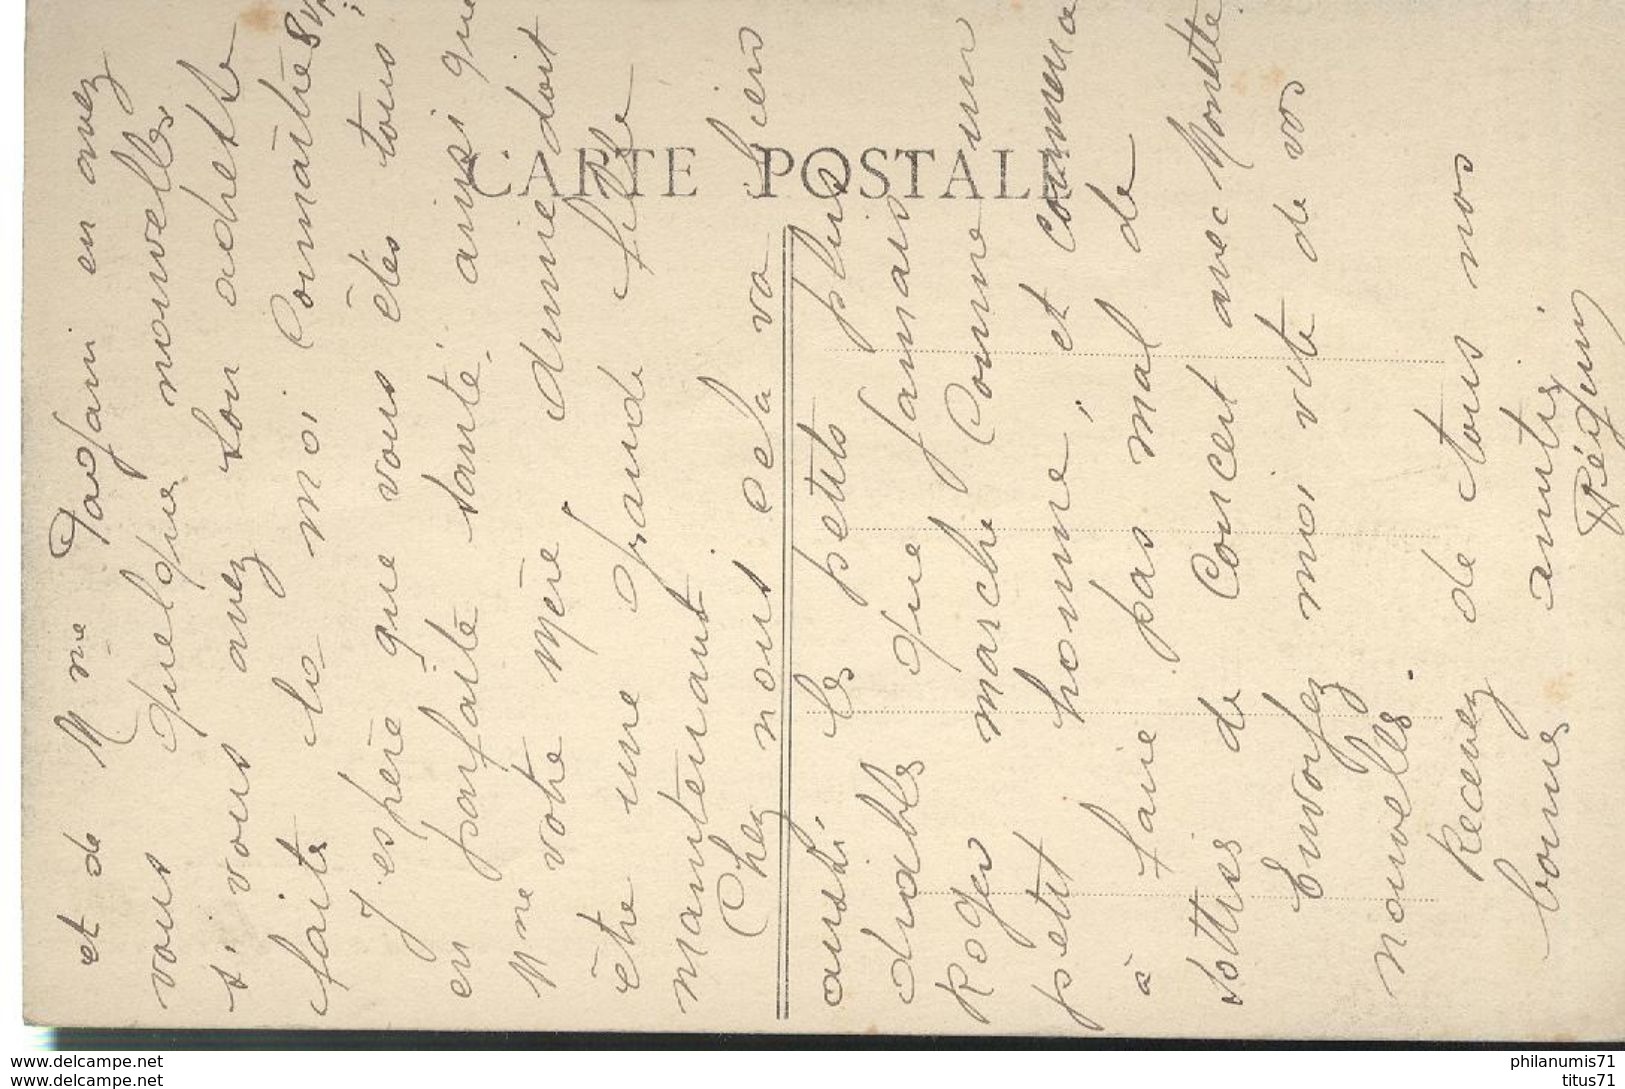 et de Mme Dufani en avez
vous quelque nouvelles
si vous avez son adresse
faites le moi connaître SVP
J'espère que vous êtes tous
en parfaite santé, ainsi que
Mme votre Mère, doit
être une grande fille
maintenant
Chez nous cela va bien
aussi les petits plus
diables que jamais
Roger marche comme un
petit homme, et commence
à faire pas mal de
sottises de concert avec Monette
Envoyez moi vite de vos
nouvelles.
Recevez de tous nos
bonnes amitiés
Péquin
CARTE POSTALE
delcampe.net
delcampe.net
philanumis71
titus71